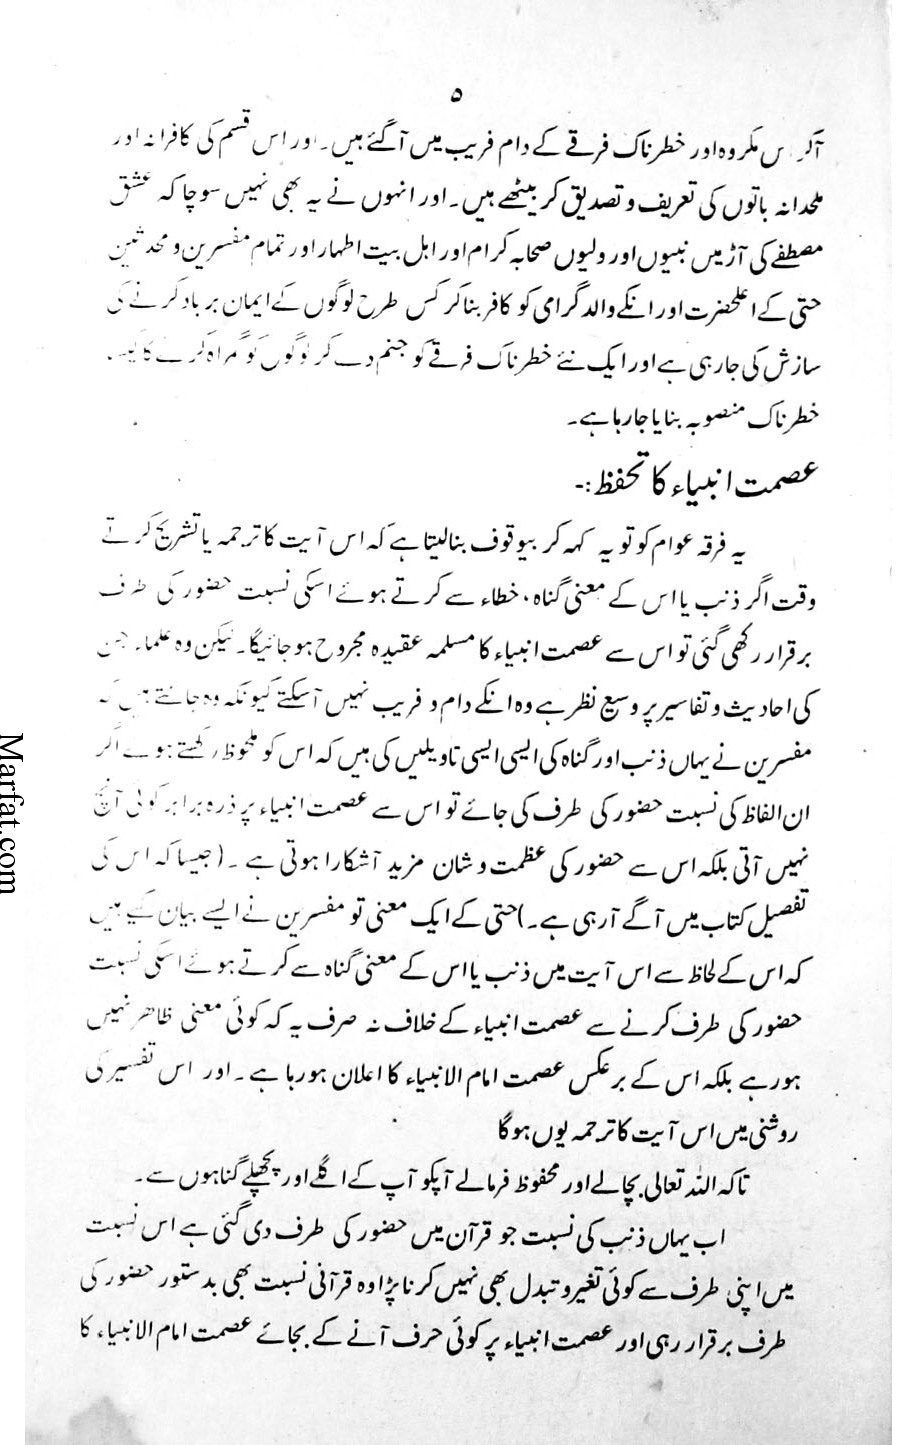 ۵
آکر اس مکروہ اور خطرناک فرقے کے دام فریب میں آگئے ہیں۔ اور اس قسم کی کافرانہ اور
ملحدانہ باتوں کی تعریف و تصدیق کر بیٹھے ہیں۔ اور انہوں نے یہ بھی نہیں سوچا کہ عشق
مصطفے کی آڑ میں نبیوں اور ولیوں صحابہ کرام اور اہل بیت اطہار اور تمام مفسرین و محدثین
حتٰی کے اعلحضرت اور انکے والد گرامی کو کافر بنا کر کس طرح لوگوں کے ایمان برباد کرنے کی
سازش کی جارہی ہے اور ایک نئے خطرناک فرقے کو جنم دے کر لوگوں کو گمراہ کرنے کا کیسا
خطرناک منصوبہ بنایا جا رہا ہے۔
عصمت انبیاء کا تحفظ :-
یہ فرقہ عوام کو تو یہ کہہ کر بیوقوف بنا لیتا ہے کہ اس آیت کا ترجمہ یا تشریح کرتے
وقت اگر ذنب یا اس کے معنی گناہ، خطاء سے کرتے ہوئے اسکی نسبت حضور کی طرف
برقرار رکھی گئی تو اس سے عصمت انبیاء کا مسلمہ عقیدہ مجروح ہو جائیگا۔ لیکن وہ علماء جن
کی احادیث و تفاسیر پر وسیع نظر ہے وہ انکے دام و فریب نہیں آسکتے کیونکہ وہ جانتے ہیں کہ
مفسرین نے یہاں ذنب اور گناہ کی ایسی ایسی تاویلیں کی ہیں کہ اس کو ملحوظ رکھتے ہوئے اگر
ان الفاظ کی نسبت حضور کی طرف کی جائے تو اس سے عصمت انبیاء پر ذرہ برابر کوئی آنچ
نہیں آتی بلکہ اس سے حضور کی عظمت و شان مزید آشکارا ہوتی ہے۔ (جیسا کہ اس کی
تفصیل کتاب میں آگے آرہی ہے۔) حتی کے ایک معنی تو مفسرین نے ایسے بیان کیے ہیں
کہ اس کے لحاظ سے اس آیت میں ذنب یا اس کے معنی گناہ سے کرتے ہوئے اسکی نسبت
حضور کی طرف کرنے سے عصمت انبیاء کے خلاف نہ صرف یہ کہ کوئی معنی ظاہر نہیں
ہورہے بلکہ اس کے برعکس عصمت امام الانبیاء کا اعلان ہو رہا ہے۔ اور اس تفسیر کی
روشنی میں اس آیت کا ترجمہ یوں ہوگا
تاکہ اللہ تعالی بچالے اور محفوظ فرمالے آپکو آپ کے اگلے اور پچھلے گناہوں سے۔
اب یہاں ذنب کی نسبت جو قرآن میں حضور کی طرف دی گئی ہے اس نسبت
میں اپنی طرف سے کوئی تغیر و تبدل بھی نہیں کرنا پڑا وہ قرآنی نسبت بھی بدستور حضور کی
طرف برقرار رہی اور عصمت انبیاء پر کوئی حرف آنے کے بجائے عصمت امام الانبیاء کا
Marfat.com